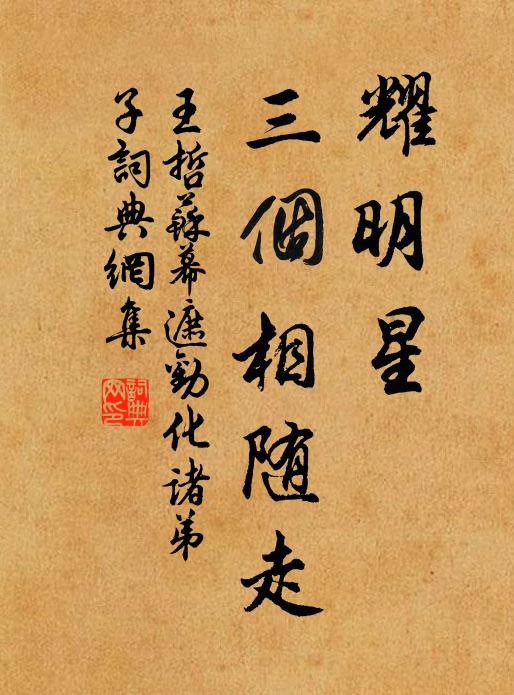 耀明星
三個相随走
王哲蘇幕遮勸化諸弟
子詞典網集
詞典網印